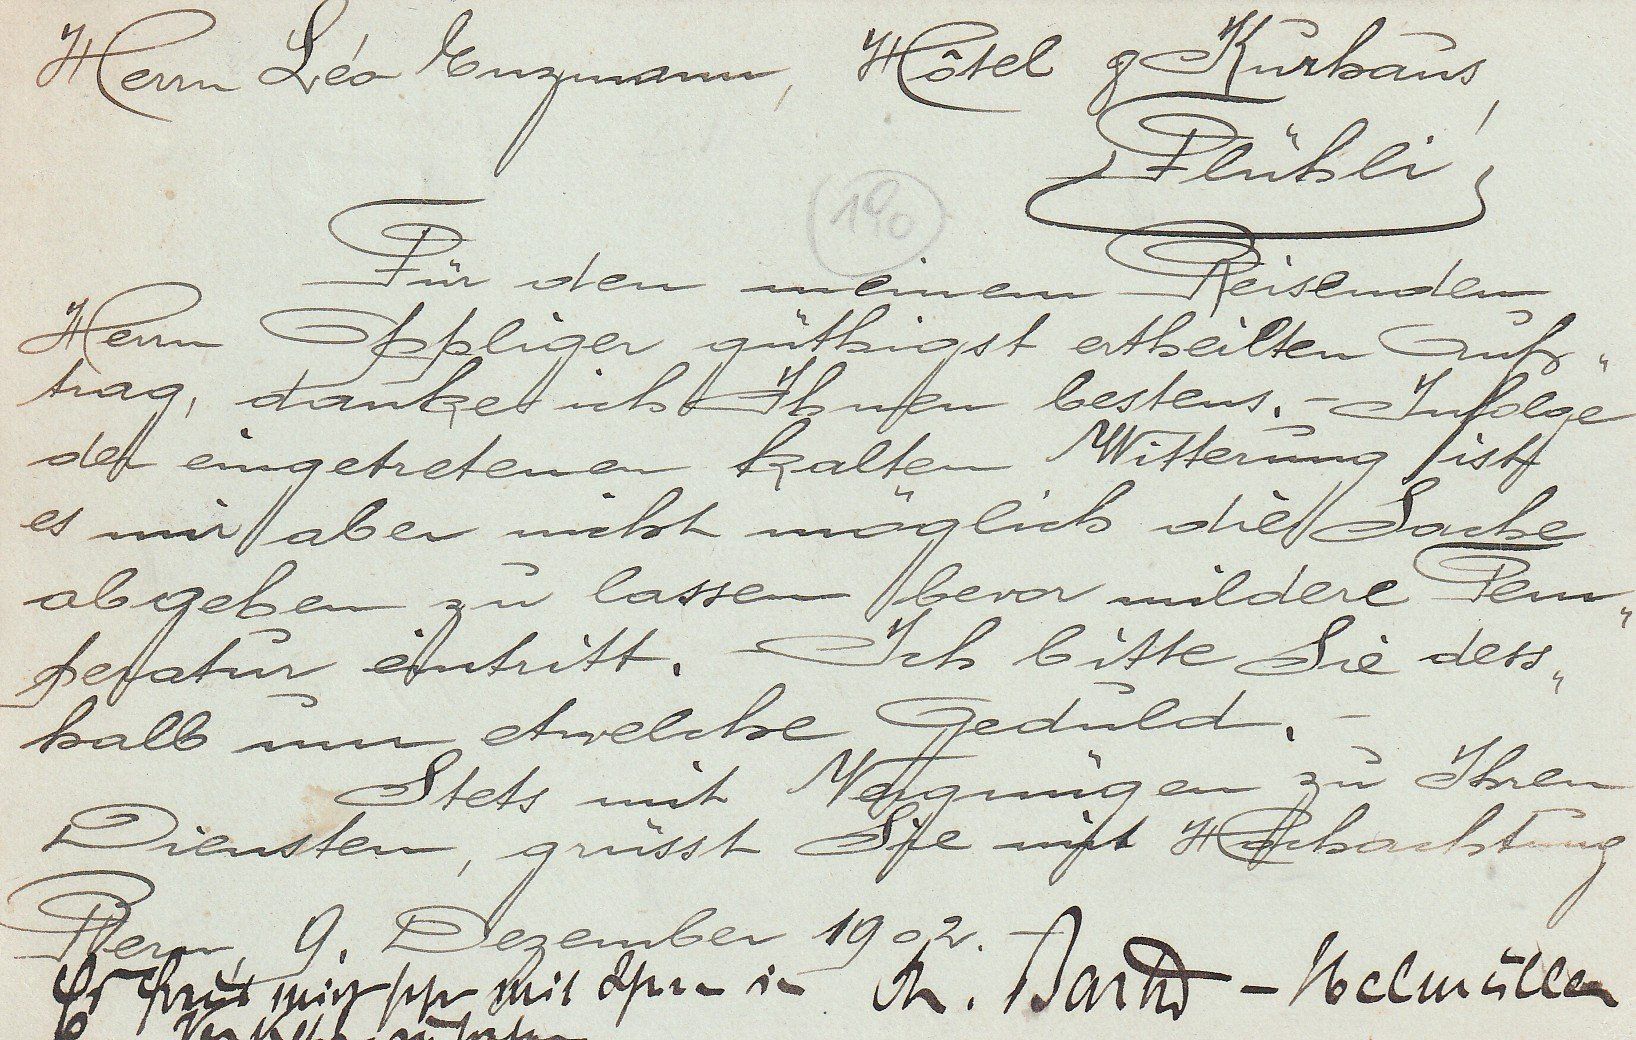 Herrn Léo Enzmann, Hôtel & Kurhaus,
Flühli
190
Für den meinem Reisenden
Herrn Oppliger güthigst ertheilten Auf-
trag, danke ich Ihnen bestens. - Infolge
der eingetretenen kalten Witterung ist
es mir aber nicht möglich die Sache
abgehen zu lassen bevor mildere Tem-
peratur eintritt. - Ich bitte Sie dess-
halb um etwelche Geduld. -
Stets mit Vergnügen zu Ihren
Diensten, grüsst Sie mit Hochachtung
Bern, 9. Dezember 1902. -
Es freut mich sehr mit Ihnen in Barth -